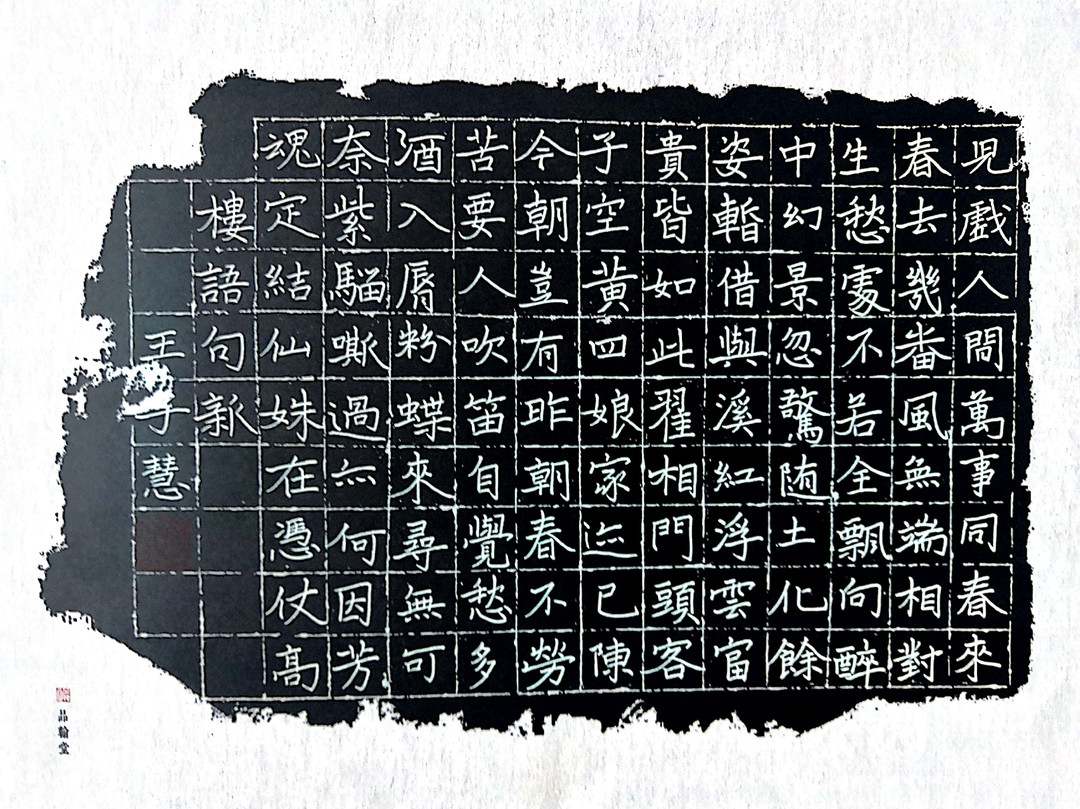 児戲人間萬事同春來
春去幾番風無端相對
生愁處不若全飄向醉
中幻景忽驚随土化餘
姿暫借與溪紅浮雲富
貴皆如此翟相門頭客
子空黃四娘家迹已陳
今朝豈有昨朝春不勞
苦要人吹笛自覺愁多
酒入脣粉蝶來尋無可
奈紫騮嘶過亦何因芳
魂定結仙姝在憑仗高
樓語句新
王子慧
品翰堂